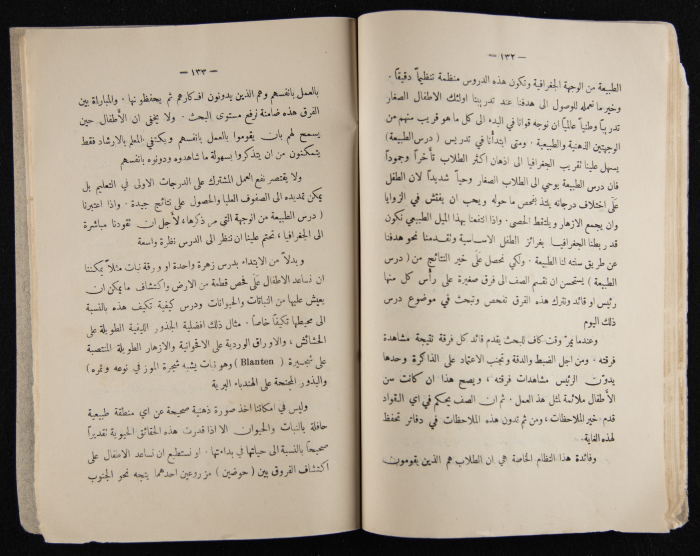 — ١٣٢ —
الطبيعة من الوجهة الجغرافية وتكون هذه الدروس منظمة تنظيماً دقيقاً .
وخير ما نعمله للوصول الى هدفنا عند تدريبنا اولئك الاطفال الصغار
تدريباً وطنياً عالياً ان نوجه قوانا في البدء الى كل ما هو قريب منهم من
الوجهتين الذهنية والطبيعية . ومتى ابتدأنا في تدريس ( درس الطبيعة )
يسهل علينا تقريب الجغرافيا الى اذهان اكثر الطلاب تأخراً وجموداً
فان درس الطبيعة يوحي الى الطلاب الصغار وحياً شديداً لان الطفل
على اختلاف درجاته يلتذ بفحص ما حوله ويحب ان يفتش في الزوايا
وان يجمع الازهار ويلتقط الحصى . واذا انتفعنا بهذا الميل الطبيعي نكون
قد ربطنا الجغرافيا بغرائز الطفل الاساسية وتقدمنا نحو هدفنا
عن طريق سنته لنا الطبيعة . ولكي نحصل على خير النتائج من ( درس
الطبيعة ) يستحسن ان نقسم الصف الى فرق صغيرة على رأس كل منها
رئيس او قائد ونترك هذه الفرق تفحص وتبحث في موضوع درس
ذلك اليوم
وعندما يمر وقت كاف للبحث يقدم قائد كل فرقة نتيجة مشاهدة
فرقته . ومن اجل الضبط والدقة وتجنب الاعتماد على الذاكرة وحدها
يدون الرئيس مشاهدات فرقته ، ويصح هذا ان كانت سن
الأطفال ملائمة لمثل هذا العمل . ثم ان الصف يحكم في اي القواد
قدم خير الملاحظات ، ومن ثم تدون هذه الملاحظات في دفاتر تحفظ
لهذه الغاية .
وفائدة هذا النظام الخاصة هي ان الطلاب هم الذين يقومون
— ١٣٣ —
بالعمل بانفسهم وهم الذين يدونون افكارهم ثم يحفظونها . والمباراة بين
الفرق هذه ضامنة لرفع مستوى البحث . ولا يخفى ان الأطفال حين
يسمح لهم بان يقوموا بالعمل بانفسهم ويكتفي المعلم بالارشاد فقط
يتمكنون من ان يتذكروا بسهولة ما شاهدوه ودونوه بانفسهم
ولا يقتصر نفع العمل المشترك على الدرجات الاولى في التعليم بل
يمكن تمديده الى الصفوف العليا والحصول على نتائج جيدة . واذا اعتبرنا
( درس الطبيعة من الوجهة التي مر ذكرها ، لأجل ان تقودنا مباشرة
الى الجغرافيا ، تحتم علينا ان ننظر الى الدرس نظرة واسعة
وبدلاً من الابتداء بدرس زهرة واحدة او ورقة نبات مثلاً يمكننا
ان نساعد الاطفال على فحص قطعة من الارض واكتشاف ما يمكن ان
يعيش عليها من النباتات والحيوانات ودرس كيفية تكيف هذه بالنسبة
الى محيطها تكيفاً خاصاً . مثال ذلك افضلية الجذور الليفية الطويلة على
الحشائش ، والاوراق الوردية على الاقحوانية والازهار الطويلة المنتصبة
على شجيرة ( Blanten ) وهو نبات يشبه شجرة الموز في نوعه وثمره )
والبذور المجنحة على الهندباء البرية
وليس في امكاننا اخذ صورة ذهنية صحيحة عن اي منطقة طبيعية
حافلة بالنبات والحيوان الا اذا قدرت هذه الحقائق الحيوية تقديراً
صحيحاً بالنسبة الى حياتها في بداءتها . او نستطيع ان نساعد الاطفال على
اكتشاف الفروق بين ( حوضين ) مزروعين احدهما يتجه نحو الجنوب